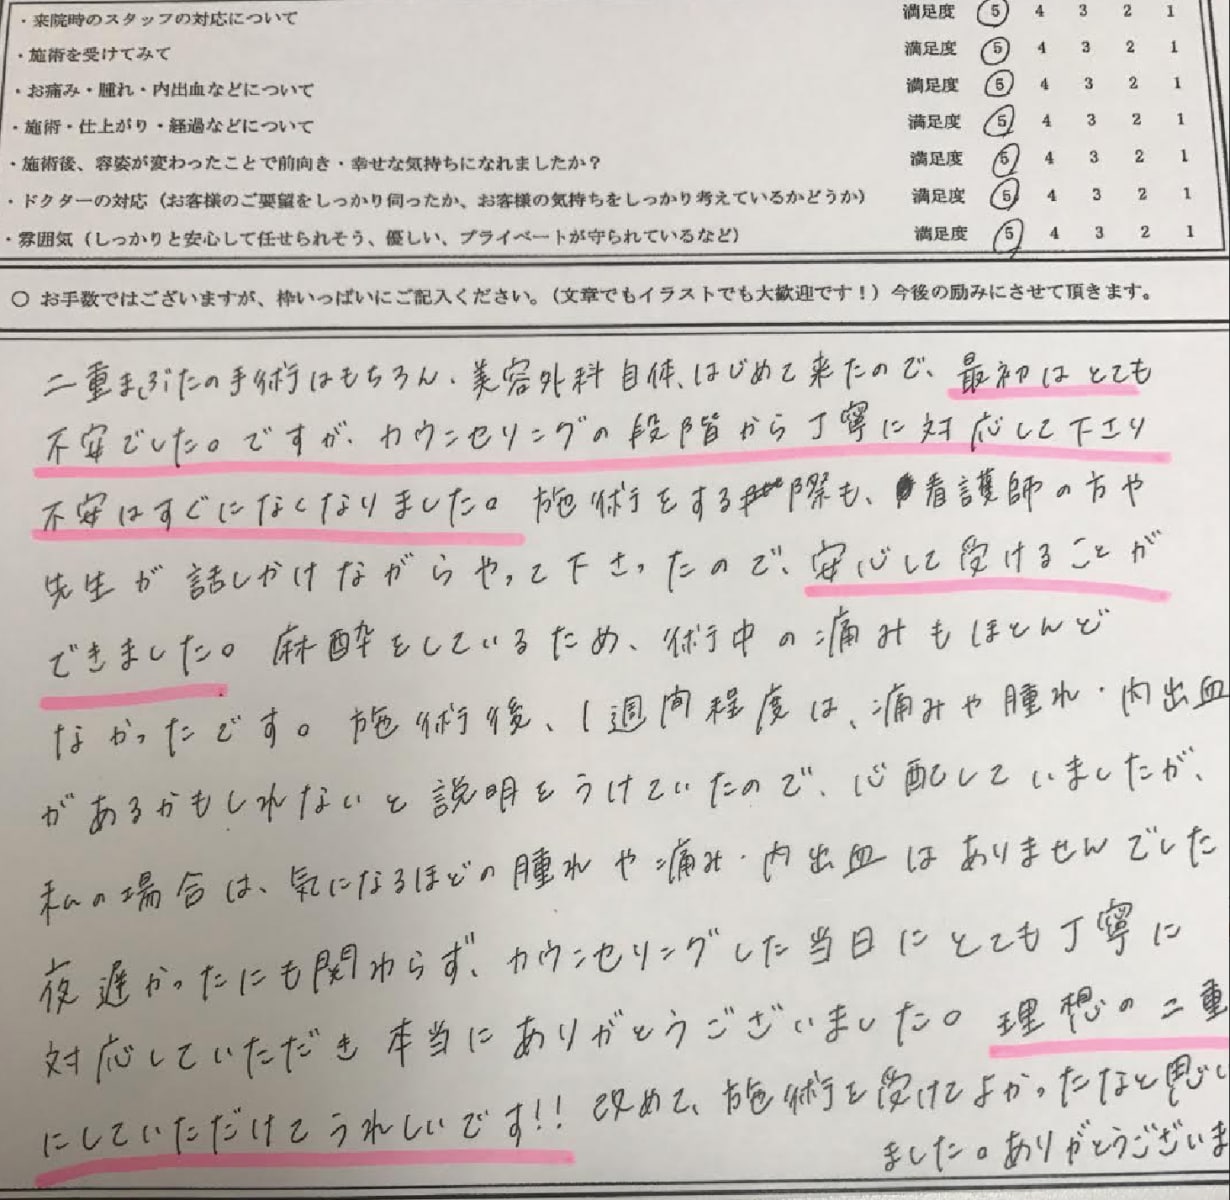 ・来院時のスタッフの対応について 満足度 5 4 3 2 1
・施術を受けてみて 満足度 5 4 3 2 1
・お痛み・腫れ・内出血などについて 満足度 5 4 3 2 1
・施術・仕上がり・経過などについて 満足度 5 4 3 2 1
・施術後、容姿が変わったことで前向き・幸せな気持ちになれましたか？ 満足度 5 4 3 2 1
・ドクターの対応（お客様のご要望をしっかり伺ったか、お客様の気持ちをしっかり考えているかどうか） 満足度 5 4 3 2 1
・雰囲気（しっかりと安心して任せられそう、優しい、プライベートが守られているなど） 満足度 5 4 3 2 1
○ お手数ではございますが、枠いっぱいにご記入ください。（文章でもイラストでも大歓迎です！）今後の励みにさせて頂きます。
二重まぶたの手術はもちろん、美容外科自体、はじめて来たので、最初はとても
不安でした。ですが、カウンセリングの段階から丁寧に対応して下さり
不安はすぐになくなりました。施術をする際も、看護師の方や
先生が話しかけながらやって下さったので、安心して受けることが
できました。麻酔をしているため、術中の痛みもほとんど
なかったです。施術後、1週間程度は、痛みや腫れ・内出血
があるかもしれないと説明をうけていたので、心配していましたが、
私の場合は、気になるほどの腫れや痛み・内出血はありませんでした
夜遅かったにも関わらず、カウンセリングした当日にとても丁寧に
対応していただき本当にありがとうございました。理想の二重
にしていただけてうれしいです!! 改めて、施術を受けてよかったなと思い
ました。ありがとうございま